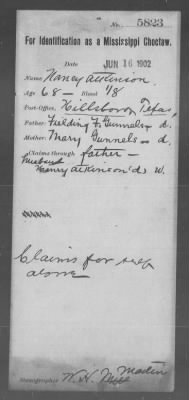 No. 5823
For Identification as a Mississippi Choctaw.
DATE JUN 16 1902
Name Nancy Atkinson
Age 68 - Blood 1/8
Post-Office, Hillsboro, Texas,
Father: Fielding F. Gunnels - d.
Mother: Mary Gunnels - d.
Claims through father -
Husband
Henry Atkinson (d) w.
Claims for self
alone
Stenographer W.H. Martin